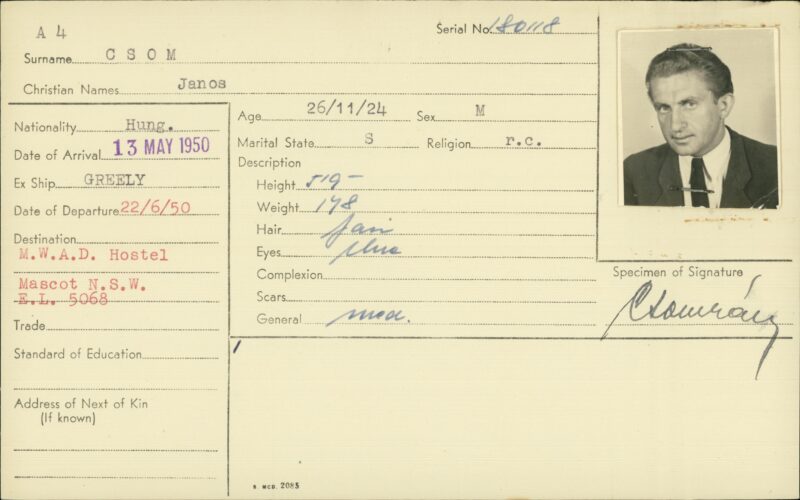 A 4
Serial No. 180118
Surname CSOM
Christian Names Janos
Nationality Hung.
Date of Arrival 13 MAY 1950
Ex Ship GREELY
Date of Departure 22/6/50
Destination
M.W.A.D. Hostel
Mascot N.S.W.
E.L. 5068
Trade
Standard of Education
Address of Next of Kin
(If known)
Age 26/11/24 Sex M
Marital State S Religion r.c.
Description
Height 519-
Weight 178
Hair fair
Eyes blue
Complexion
Scars
General med.
Specimen of Signature
2085